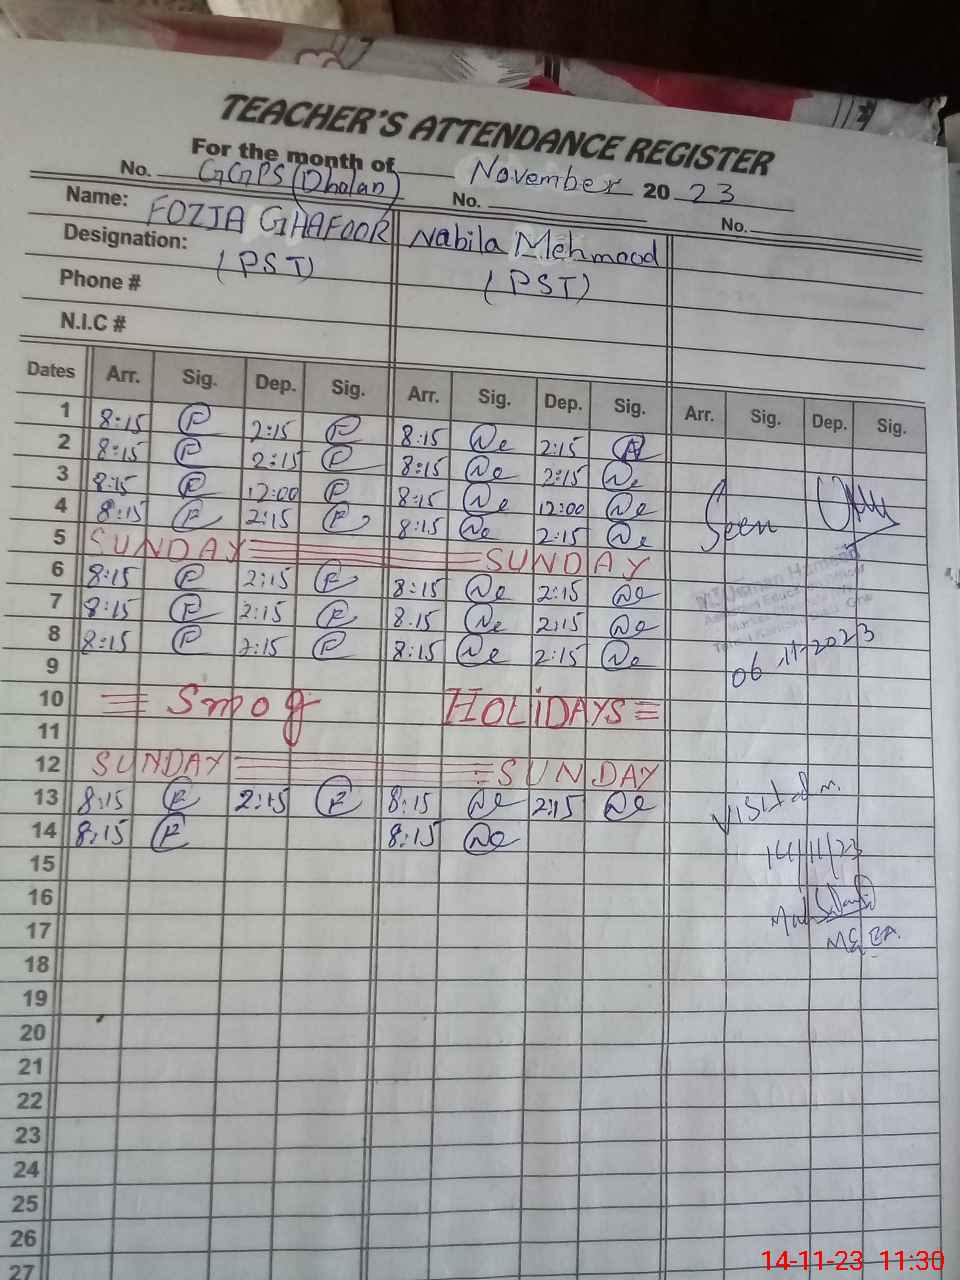 TEACHER'S ATTENDANCE REGISTER
For the month of November 2023
No. GGPS (Dholan) No. No.
Name: FOZIA GHAFOOR Nabila Mehmood
Designation: (PST) (PST)
Phone #
N.I.C #
Dates Arr. Sig. Dep. Sig. Arr. Sig. Dep. Sig. Arr. Sig. Dep. Sig.
1 8:15 F 2:15 F 8:15 Ne 2:15
2 8:15 F 2:15 F 8:15 Ne 2:15 Ne
3 8:15 F 12:00 F 8:15 Ne 12:00 Ne
4 8:15 F 2:15 F 8:15 Ne 2:15 Ne
Seen
5 SUNDAY SUNDAY
6 8:15 F 2:15 F 8:15 Ne 2:15 Ne
7 8:15 F 2:15 F 8:15 Ne 2:15 Ne
8 8:15 F 2:15 F 8:15 Ne 2:15 Ne
06-11-2023
9
10 Smog HOLIDAYS
11
12 SUNDAY SUNDAY
13 8:15 F 2:15 F 8:15 Ne 2:15 Ne
14 8:15 F 8:15 Ne
Visited
14/11/23
MEA
15
16
17
18
19
20
21
22
23
24
25
26
27
14-11-23 11:30